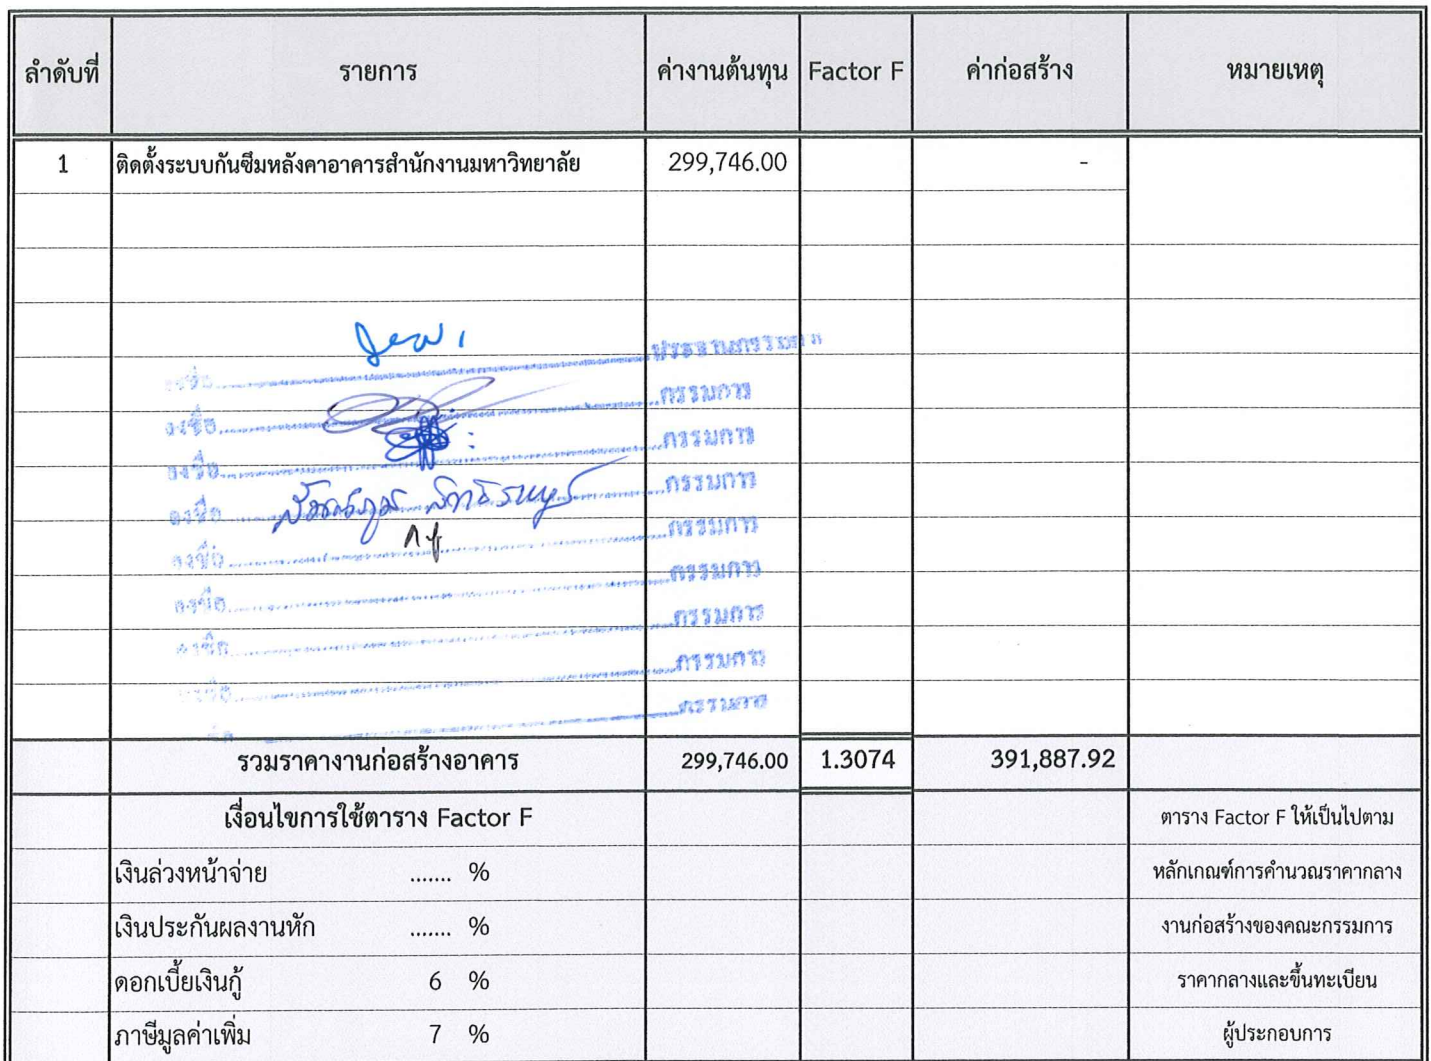 ลำดับที่ รายการ ค่างานต้นทุน Factor F ค่าก่อสร้าง หมายเหตุ
1 ติดตั้งระบบกันซึมหลังคาอาคารสำนักงานมหาวิทยาลัย 299,746.00 -
ลงชื่อ ประธานกรรมการ
ลงชื่อ กรรมการ
ลงชื่อ กรรมการ
ลงชื่อ กรรมการ
ลงชื่อ กรรมการ
ลงชื่อ กรรมการ
ลงชื่อ กรรมการ
ลงชื่อ กรรมการ
กรรมการ
รวมราคางานก่อสร้างอาคาร 299,746.00 1.3074 391,887.92
เงื่อนไขการใช้ตาราง Factor F ตาราง Factor F ให้เป็นไปตาม
เงินล่วงหน้าจ่าย ....... % หลักเกณฑ์การคำนวณราคากลาง
เงินประกันผลงานหัก ....... % งานก่อสร้างของคณะกรรมการ
ดอกเบี้ยเงินกู้ 6 % ราคากลางและขึ้นทะเบียน
ภาษีมูลค่าเพิ่ม 7 % ผู้ประกอบการ